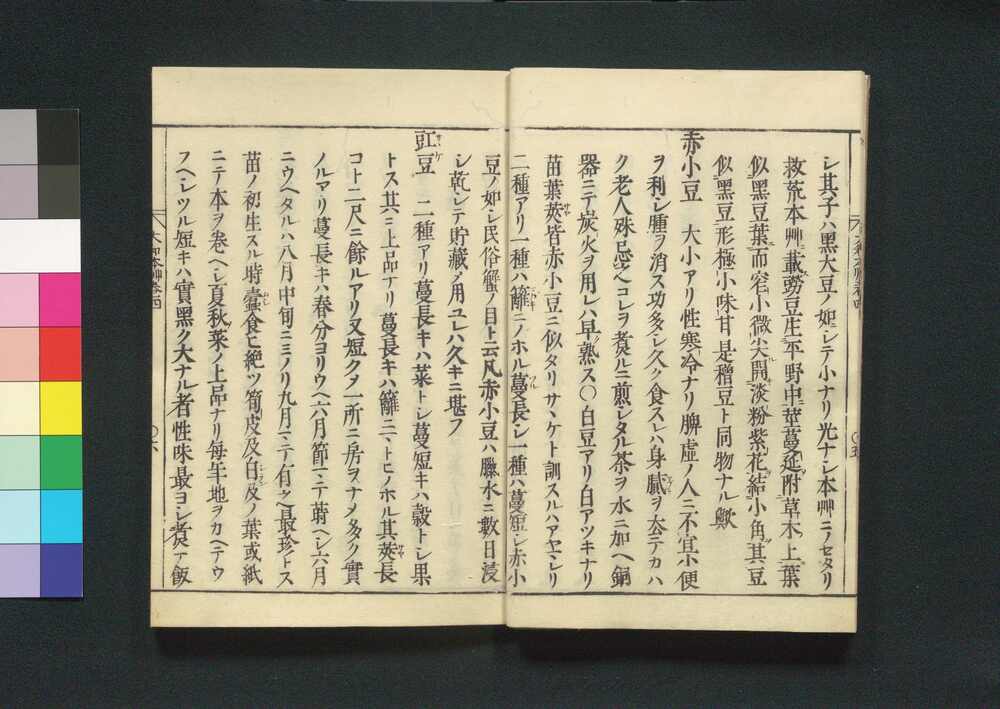 シ其子ハ黒大豆ノ如シテ小ナリ光ナシ本艸ニノセタリ
救荒本艸ニ載䝁豆生平野中莖蔓延附草木上葉
似黑豆葉而窄小微尖開淡粉紫花結小角其豆
似黑豆形極小味甘是穭豆ト同物ナル歟
赤小豆 大小アリ性寒冷ナリ脾虚ノ人ニ不宜小便
ヲ利シ腫ヲ消ス功多シ久ク食スレハ身膩ヲ去テカハ
ク老人殊忌ヘシコレヲ煮ルニ煎シタル茶ヲ水ニ加ヘ銅
器ニテ炭火ヲ用レハ早熟ス〇白豆アリ白アツキナリ
苗葉莢皆赤小豆ニ似タリサヽケト訓スルハアヤマレリ
二種アリ一種ハ籬ニノホル蔓長シ一種ハ蔓短シ赤小
豆ノ如シ民俗蟹ノ目ト云凡赤小豆ハ臘水ニ數日浸
シ乾シテ貯藏メ用ユレハ久キニ堪フ
豇豆 二種アリ蔓長キハ菜トシ蔓短キハ穀トシ果
トス其ニ上品ナリ蔓長キハ籬ニヽトヒノホル其莢長
コト二尺ニ餘ルアリ又短クメ一所ニ房ヲナメ多ク實
ノルアリ蔓長キハ春分ヨリウヘ六月節ニテ蒔ヘシ六月
ニウヘタルハ八月中旬ニミノリ九月マテ有之最珍トス
苗ノ初生スル時蠧食亡絶ツ筍皮及白及ノ葉或紙
ニテ本ヲ巻ヘシ夏秋菜ノ上品ナリ毎年地ヲカヘテウ
フヘシツル短キハ實黑ク大ナル者性味最ヨシ煮テ飯
大和本艸卷四
〇六